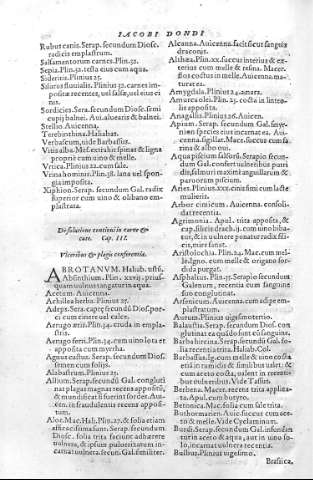 IACOBI DONDI
Rubus canis. Serap. secundum Diosc.
radicis emplastrum.
Salsamentorum carnes. Plin. 32.
Sepia. Plin. 32. testa eius cum aqua.
Sideritis. Plinius 25.
Silurus fluuialis. Plinius 32. carnes im-
positæ recentes, uel salsæ, uel eius ci
nis.
Sordicies. Sera. secundum Diosc.
balnei. Aui.
Stellio. Auicenna.
Terebinthina. Haliabas.
Verbascum, uide Barbassus.
Vitis alba. Mes. extrahit spinas & ligna
proprie cum uino & melle.
Vrtica. Plinius 22. cum sale.
Vrina hominis. Plin. 38. lana uel spon-
gia imposita.
Xiphion. Serap. secundum Gal. radix
superior cum uino & olibano em-
plastrata.
De solutione continui in carne &
cute. Cap. III.
Plenitus & plagis conferentia.
ABROTANVM. Haliab. usti,
Absinthium. Plin. xxvii. prius-
quam uulnus tangatur in aqua.
Acetum. Auicenna.
Achillea herba. Plinius 25.
Adeps. Sera. capræ secundũ Diosc. por-
ci cum cinere uel calce.
Aerugo æris. Plin. 34. cruda in empla-
stris.
Aerugo ferri. Plin. 34. cum uino lota et
apposita cum myrrha.
Agnus castus. Serap. secundum Diosc.
semen cum folijs.
Alabastrum. Plinius 23.
Allium. Serap. secundũ Gal. congluti
nat plagas magnas recens appositũ,
& mundificat si fuerint sordidæ. Aui-
cen. in fraudulentis recens apposi-
tum.
Aloe. Mac. Hab. Plin. 27. & folia etiam
Serap. secundum
Diosc. folia trita faciunt adhærere
uulnera, & ipsius
carnat uulnera secun. Gal. similiter.
Alcanna. Auicenna. facit sicut sanguis
draconis.
Althæa. Plin. xx. succus interius & ex-
terius cum melle & resina. Macer.
flos coctus in melle. Auicenna. ma-
turat ea.
Amygdala. Plinius 24. amara.
Amurca olei. Plin. 23. cocta in lintea
apposita.
Anagallis. Plinius 26. Auicen.
Apium. Serap. secundum Gal. smyr-
nion species eius incarnat ea. Aui-
cenna. sigillat. Macer. succus cum fa
rina & albo oui.
Aqua piscium salsorũ. Serapio secun-
dum Gal. confert uulneribus putri
dis,
paruorum piscium.
Aries. Plinius. xxx. cinis simi cum rosa
melle.
Arbor citiacus. Auicenna. consoli-
dat recentia.
Agrimonia. Apul. trita apposita, &
cap. siler. drach. ij. cum uino biba-
tur, & in uulnere ponatur radix sili-
cis, mire sanat.
Aristolochia. Plin. 24. Mac. cum mel-
le. Ignos. cum melle & origano sor-
dida purgat.
Asphaltum. Plin. 35. Serapio secundum
Galenum, recentia cum sanguine
suo conglutinat.
Arsenicum. Auicenna. cum adipe em-
plastratum.
Aurum. Plinius uigesimotertio.
Balaustia. Serap. secundum Diosc. con
glutinat ea quãdo sunt cũ sanguine.
Barba hircina. Serap. secundũ Gal. fo-
lia recentia trita. Haliab. Col.
Barbassus. Ig. cum melle & uino cocta
etiã in ramulis & simili bus ualet. &
cum aceto cocta, ualent in recenti-
bus uulneribus. Vide Tassus.
Berbena. Macer. recens trita applica-
ta. Apul. cum butyro.
Betonica. Mac. folia cum sale trita.
Buthormarien. Auic. succus cum ace-
to & melle. Vide Cyclaminum.
Burdi. Serap. secundum Gal. infundun
tur in aceto & aqua, aut in uino so-
lo, incarnat uulnera recentia.
Bulbus. Plinius uigesimo.
Brassica,